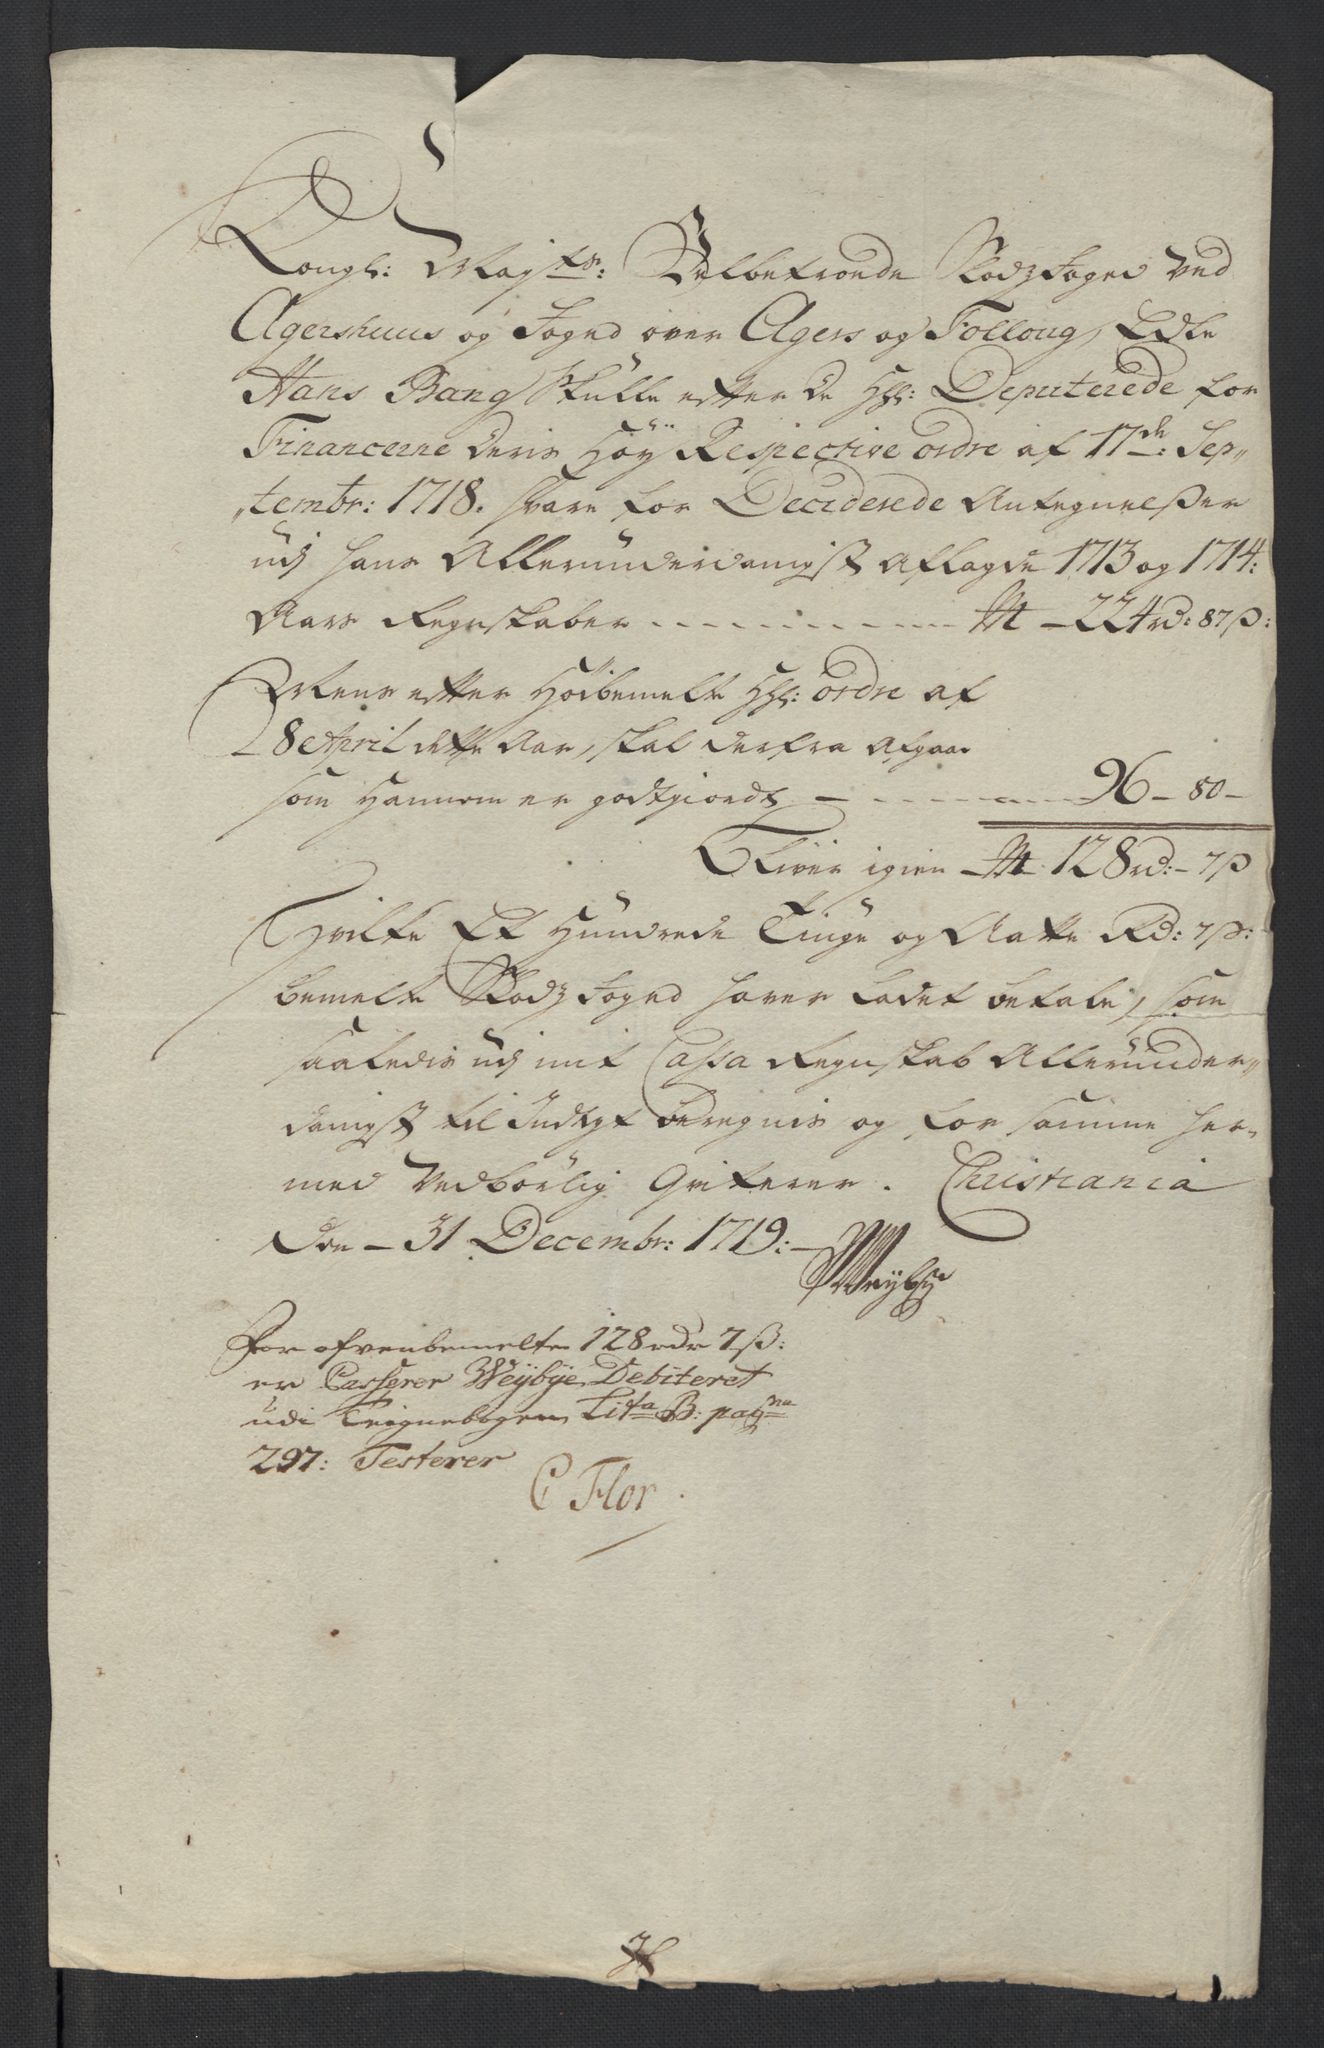 Kongl: Mayts: Velbetroede Slodzfoged Ved
Agershuus og Foged over Agers og Folloug, Edle
Hans Bang skulle efter de HH: Deputerede for
Financerne deris Høy Respective ordre af 17de: Sep„
„tembr: 1718. svare for Deciderede Antegnelßer
udj hans Allerunderdanigst aflagde 1713 og 1714:
Aars Regnskaber - - - - - - - - - 224 rd: 87 ß:
Mens efter Høibemelte HH: ordre af
8 April dette Aar, skal derfra afgaae
som hannem er godtgiordt - - - - - 96 - 80 -
Bliver igien - 128 rd: - 7 ß
Hvilke Et Hundrede Tiuge og Aatte Rd: 7 ß:
bemelte Slodz foged haver ladet betale, som
saaledis udj mit Cassa Regnskab Allerunder„
danigst til Indtegt beregnis og for samme her„
med Vedbørlig Qviterer. Christiania
den - 31 Decembr: 1719: -
Weybye
For ofvenbemelte 128 rdr 7 ß:
er Casserer Weÿbye Debiteret
udi Teignebogen Lita B: pagna
297: Testerer
C Flor